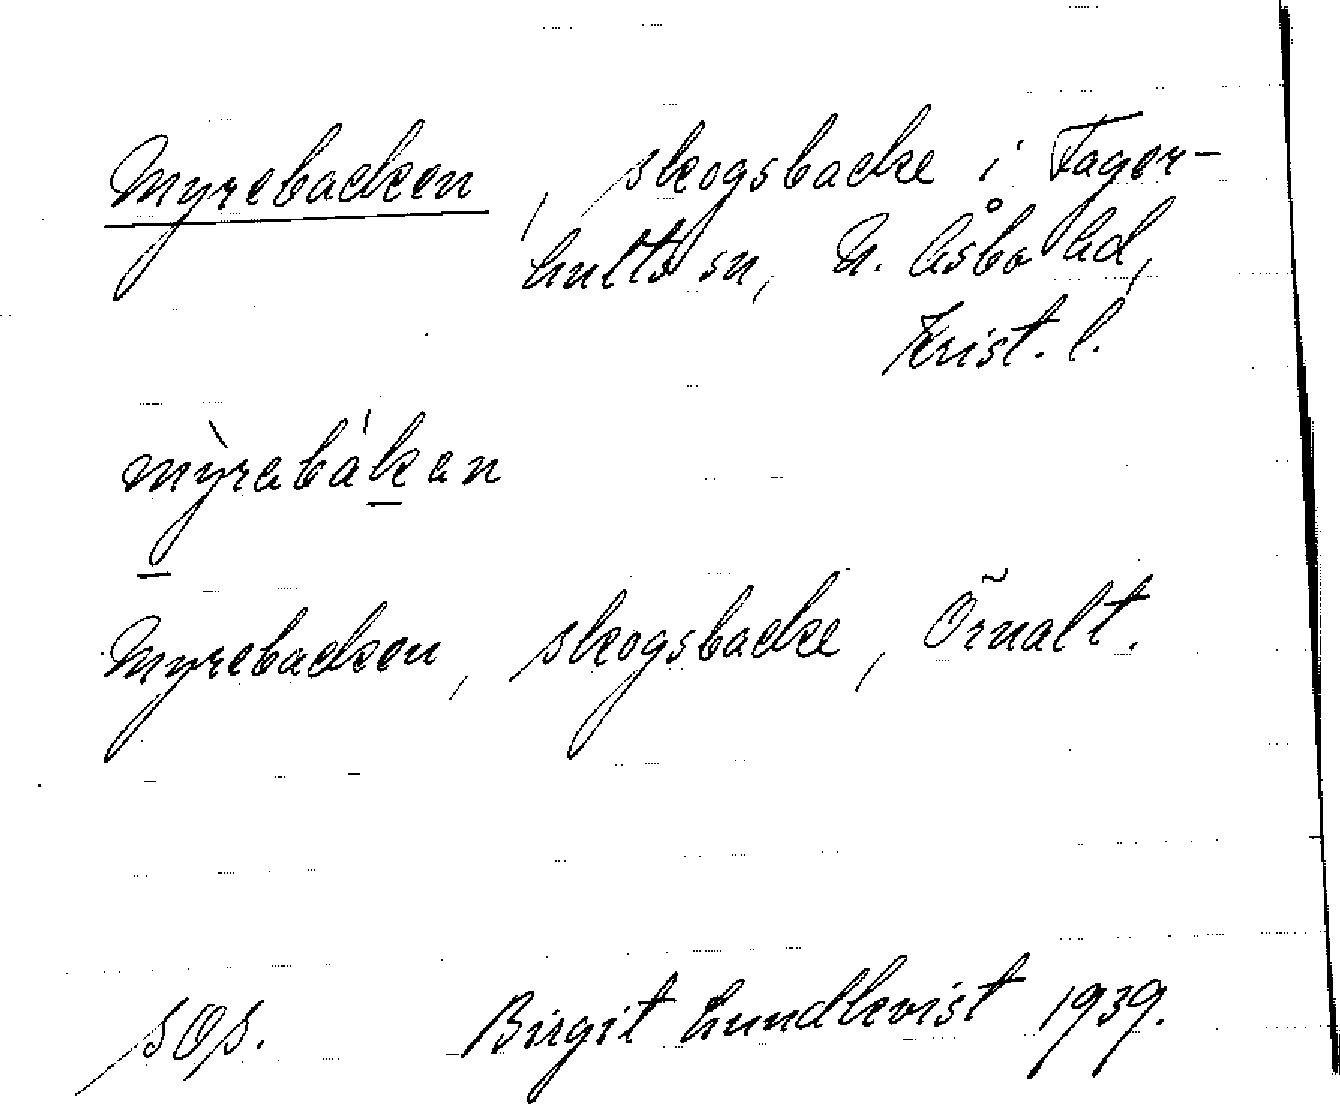 Myrebacken, skogsbacke i Fager-
hults sn, N. Åsbo hd,
Krist. l.
mỳrabákan
Myrebacken, skogsbacke, Örnalt.
sOs. Birgit Lundkvist 1939.